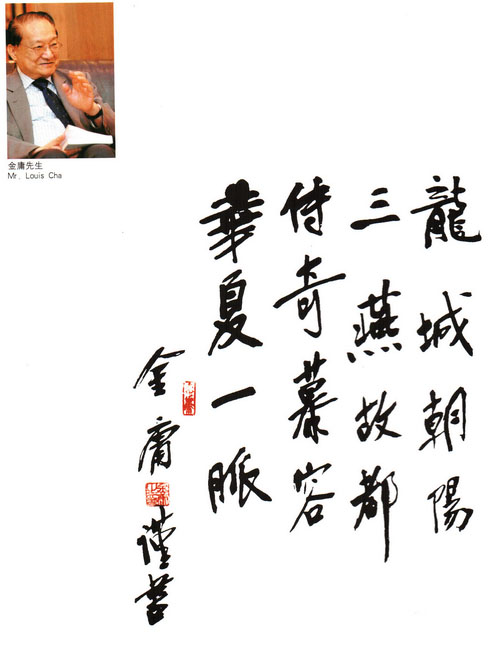 金庸先生
Mr. Louis Cha
龍城朝陽
三燕故都
傳奇慕容
華夏一脈
金庸
謹書